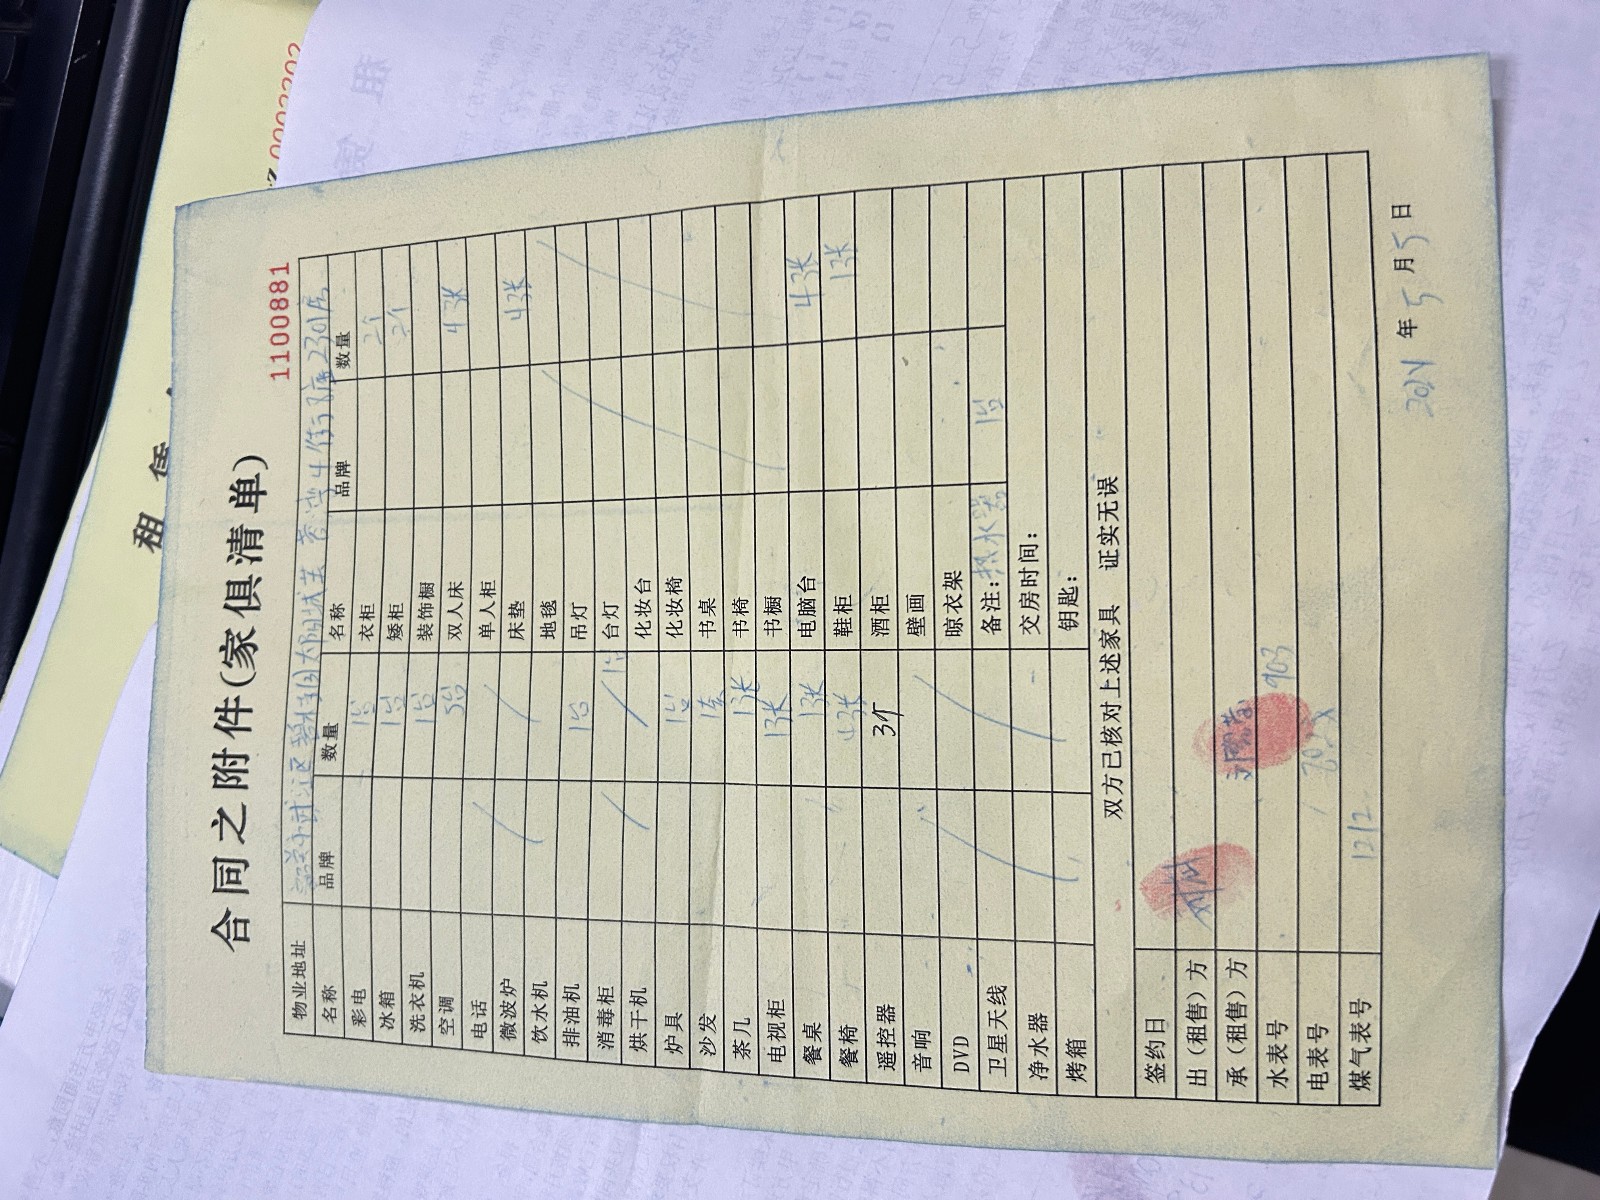 合同之附件(家俱清单)
1100881
物业地址 太阳城 4街 2301房
名称 品牌 数量 名称 品牌 数量
彩电 1台 衣柜 2个
冰箱 1台 矮柜 2个
洗衣机 1台 装饰橱
空调 5台 双人床 4张
电话 单人柜
微波炉 床垫 4张
饮水机 地毯
排油机 1台 吊灯
消毒柜 台灯
烘干机 化妆台
炉具 1台 化妆椅
沙发 1套 书桌
茶几 1张 书椅
电视柜 1张 书橱
餐桌 1张 电脑台 4张
餐椅 鞋柜 1张
遥控器 3个 酒柜
音响 壁画
DVD 晾衣架
卫星天线 备注:热水器 1台
净水器 交房时间:
烤箱 钥匙:
双方已核对上述家具 证实无误
签约日
出(租售)方
承(租售)方
水表号 903
电表号
煤气表号 1212
2021年5月5日
租